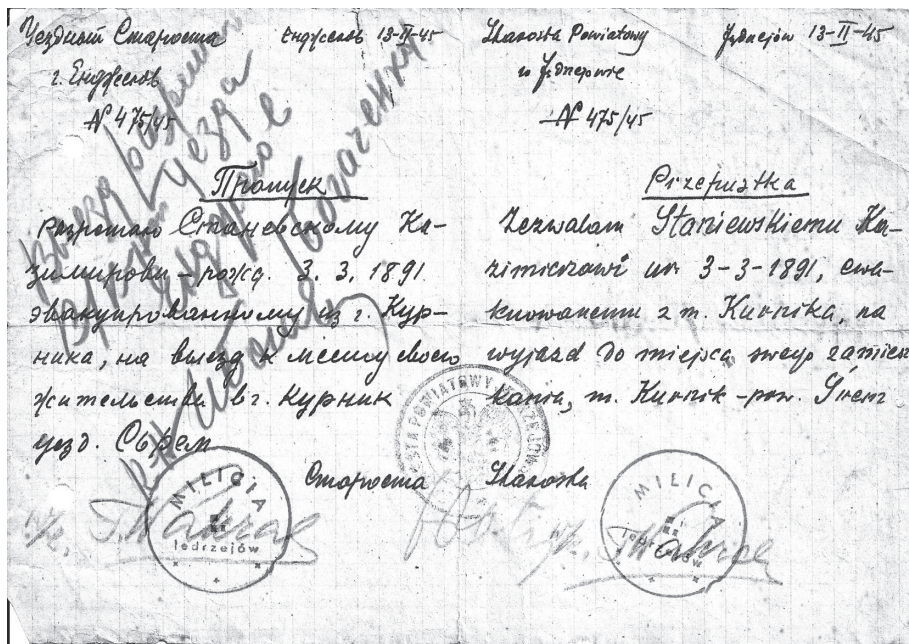 Уездный Староста Енджеев 13-II-45
г. Енджеев
№ 475/45
Пропуск
Разрешаю Станевскому Ка-
зимирови - рожд. 3. 3. 1891.
эвакуированному из г. Кур-
ника, на выезд к месту своего
жительства в г. Курник
уезд. Сьрем
Староста
MILICJA
Jędrzejów
Starosta Powiatowy Jędrzejów 13-II-45
w Jędrzejowie
№ 475/45
Przepustka
Zezwalam Staniewskiemu Ka-
zimierzowi ur. 3-3-1891, ewa-
kuowanemu z m. Kurnika, na
wyjazd do miejsca swego zamiesz
kania, m. Kurnik - pow. Śrem
Starosta
MILICJA
Jędrzejów
STA POWIATOWY JĘDRZEJOW